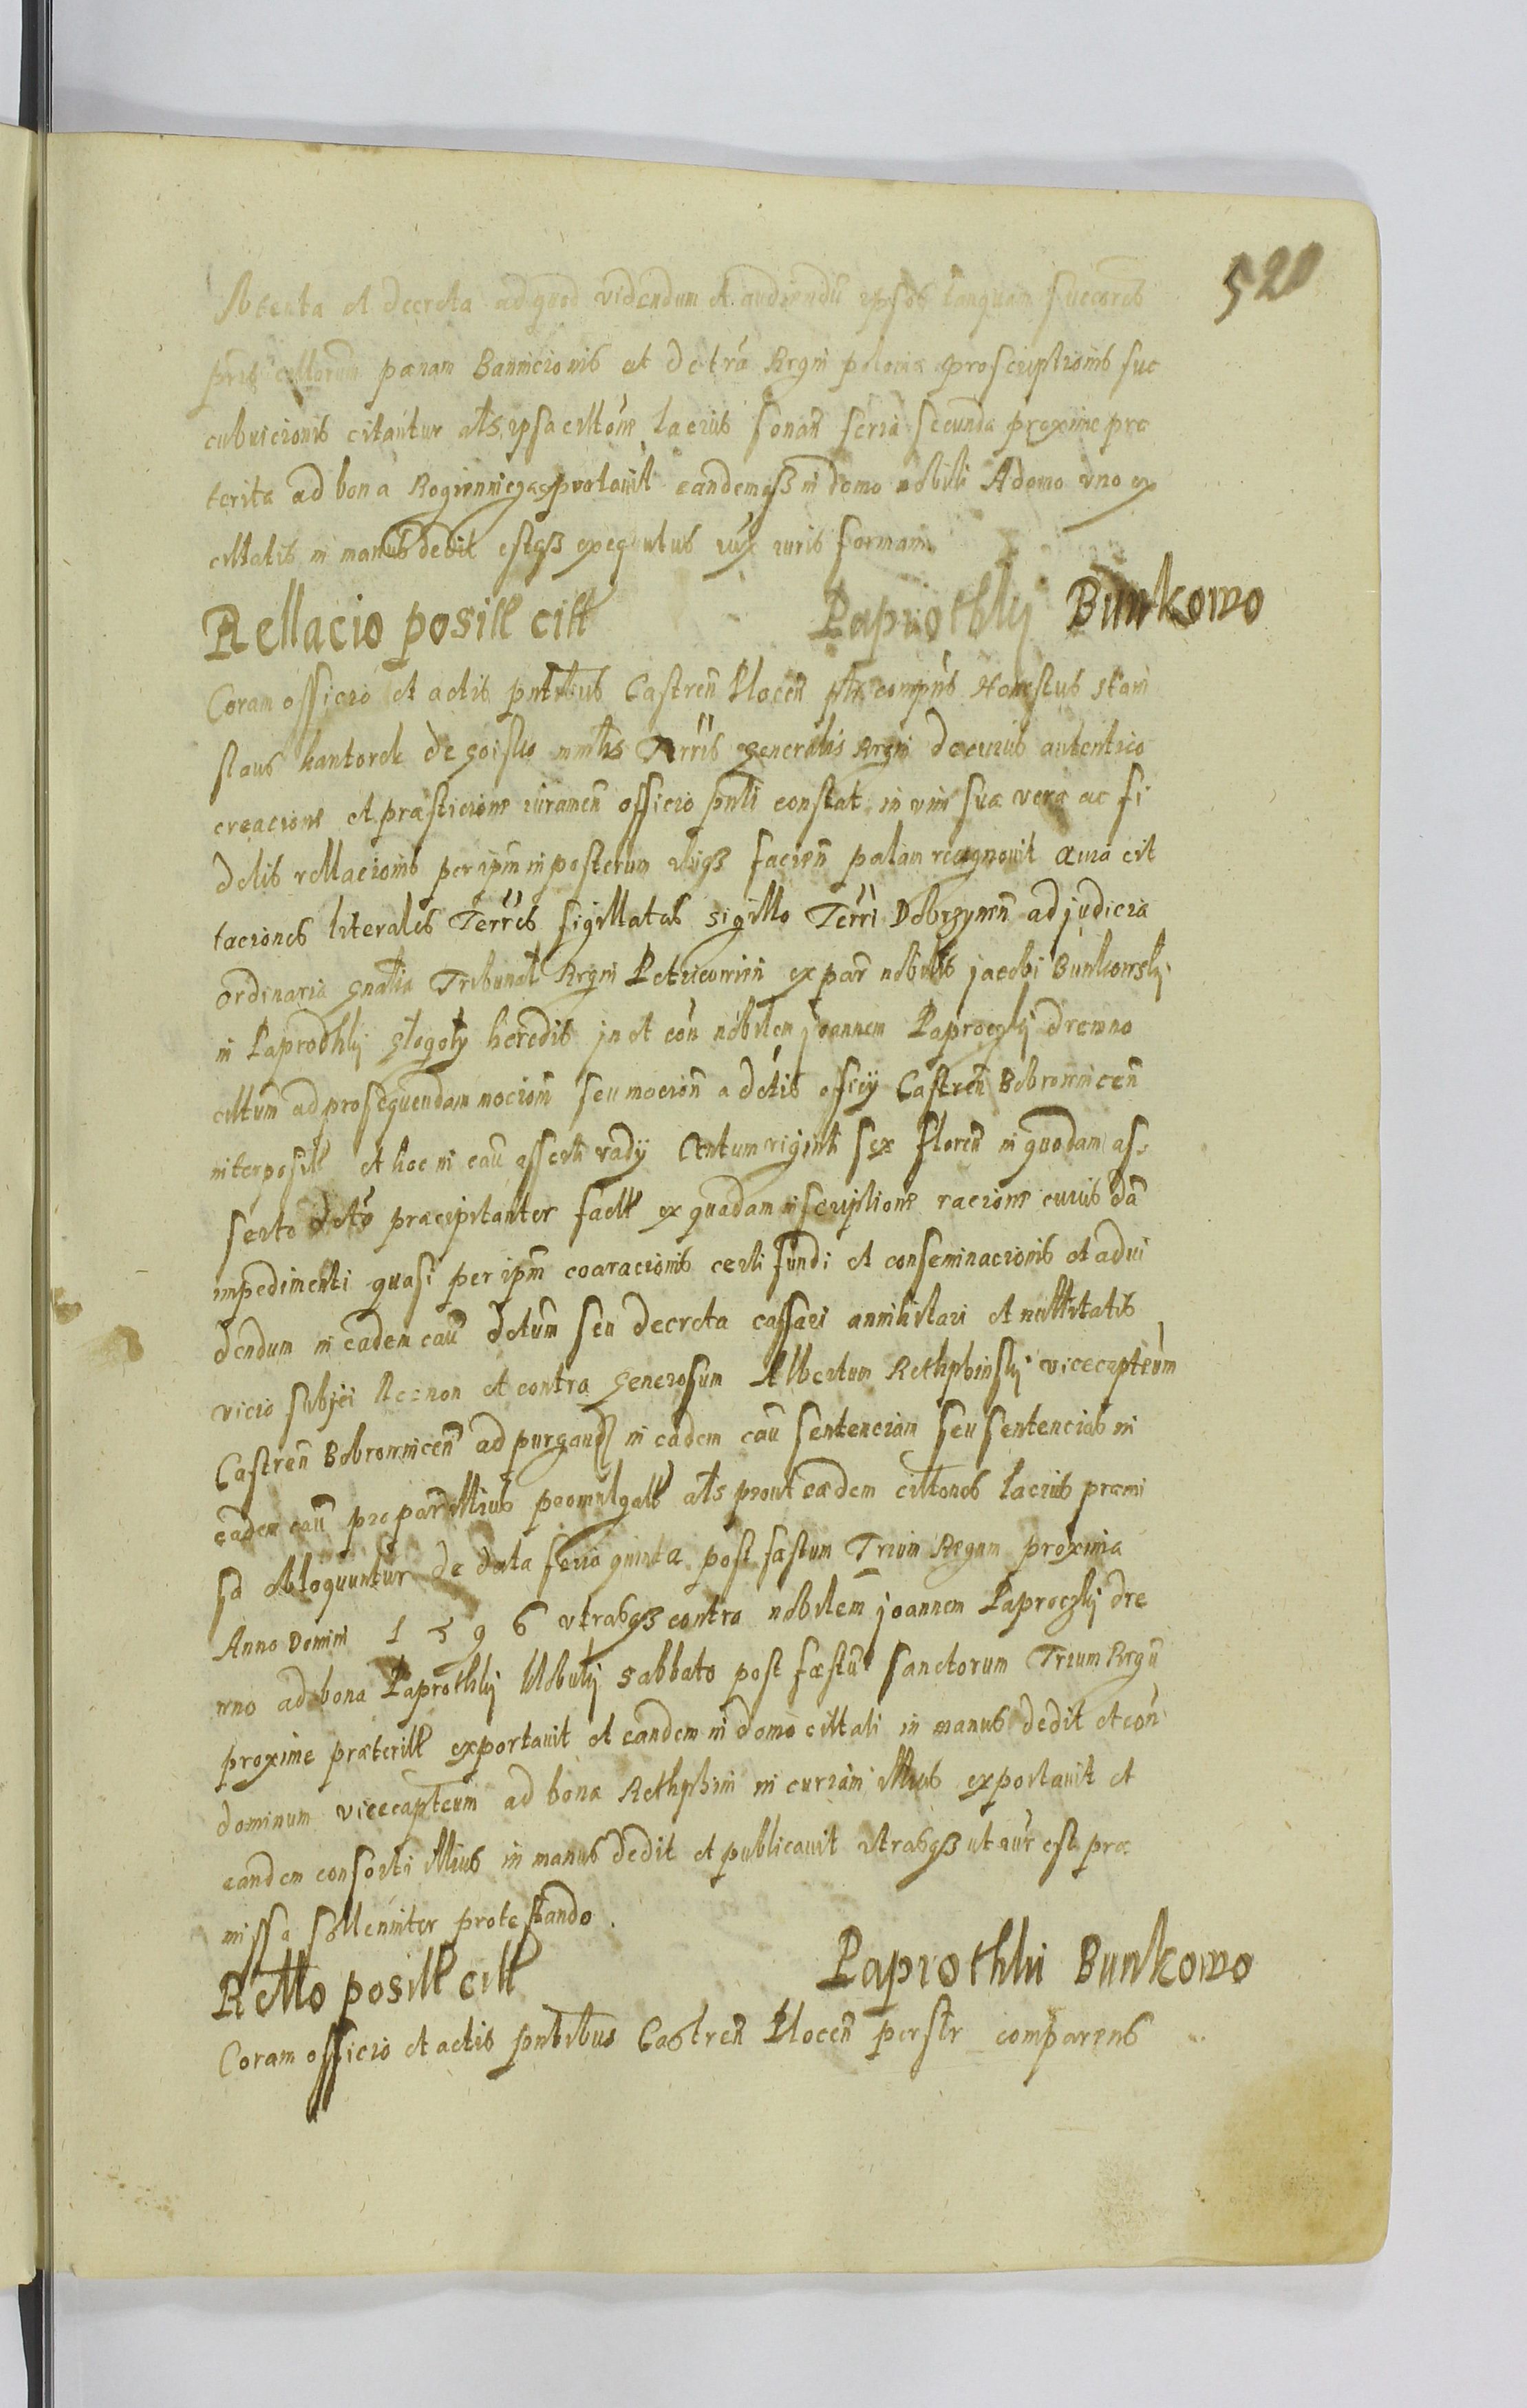 520
obtenta et decreta ad quod videndum et audiendũ ipsos tanquam succores
pris cittorum pænam Bannicionis et de tra Regni poloniæ proscriptionis suc
cubuicionis citantur als ipsa cittõne lacius sonañ feria secunda proxime præ
terita ad bona Rogienniczæ exportavit eandemqз in domo nobili Adomo uno ex
cittatis in manus dedit estqз exequtus iux iuris formam
Rellacio positt citt Paprothky Bunkowo
Coram officio et actis pntibus Castreñ Ploceñ psltr compns Honestus stani
slaus kantorek de goisko minlis Terris generalis Regni de cuius autentico
creacione et præsticione iurameñ officio pnti constat in vim suæ veræ ac fi
delis rellacionis per ipm in posterum ubiqз facieñ palam recognovit quia cit
taciones literales Terres sigillatas sigillo Terri Dobrzyneñ ad judicia
ordinaria gnalia Tribunal Regni Petricovien ex par nobilis jacobi Bunkowsky
in Paprodhky glogoty heredis in et con nobilem joannem Paproczky drewno
cittum ad prosequendam mocioñ seu mocioñ a dctis officy Castreñ Bobrowniceñ
interposit et hoc in cau asserti vady Centum viginti sex floreñ in quodam as
serto dcto præcipitanter factt ex quadam inscriptione racione cuius dã
impedimenti quasi per ipm coaracionis certi fundi et conseminacionis et ad vi
dendum in eadem cau dctum seu decreta cassari annihilari et nullitatis
vicio subjci Necnon et contra generosum Albertum Rethphinsky vicecapteum
Castreñ Bobrowniceñ ad purgand in eadem cau sentenciam seu sentencias in
eadem cau pro par illius promulgatt als prout eædem cittones lacius præmi
sa obloquuntur de data feria quinta post fæstum Trium Regum proxima
Anno Domini 1596 utrasqз contra nobilem joannem Paproczky dre
wno ad bona Paprothky Mobuly sabbato post fæstũ sanctorum Trium Regũ
proxime præteritt exportavit et eandem in domo cittati in manus dedit et coñ
dominum vicecapteum ad bona Rethphini in curiam illius exportavit et
eandem consorti illius in manus dedit et publicavit utrasqз ut iur est præ
missa sollenniter protestando.
Rello positt citt Paprothki Bunkowo
Coram officio et actis pntibus Castreñ Ploceñ perstr comparens